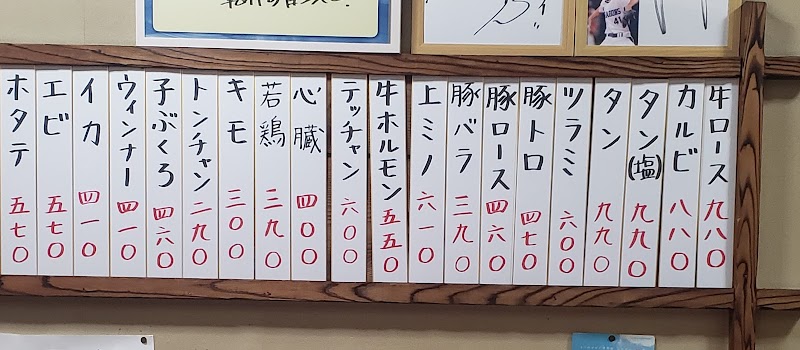 牛ロース 九八〇
カルビ 八八〇
タン(塩) 九九〇
タン 九九〇
ツラミ 六〇〇
豚トロ 四七〇
豚ロース 四六〇
豚バラ 三九〇
上ミノ 六一〇
牛ホルモン 五五〇
テッチャン 六〇〇
心臓 四〇〇
若鶏 三九〇
キモ 三〇〇
トンチャン 二九〇
子ぶくろ 四六〇
ウィンナー 四一〇
イカ 四一〇
エビ 五七〇
ホタテ 五七〇